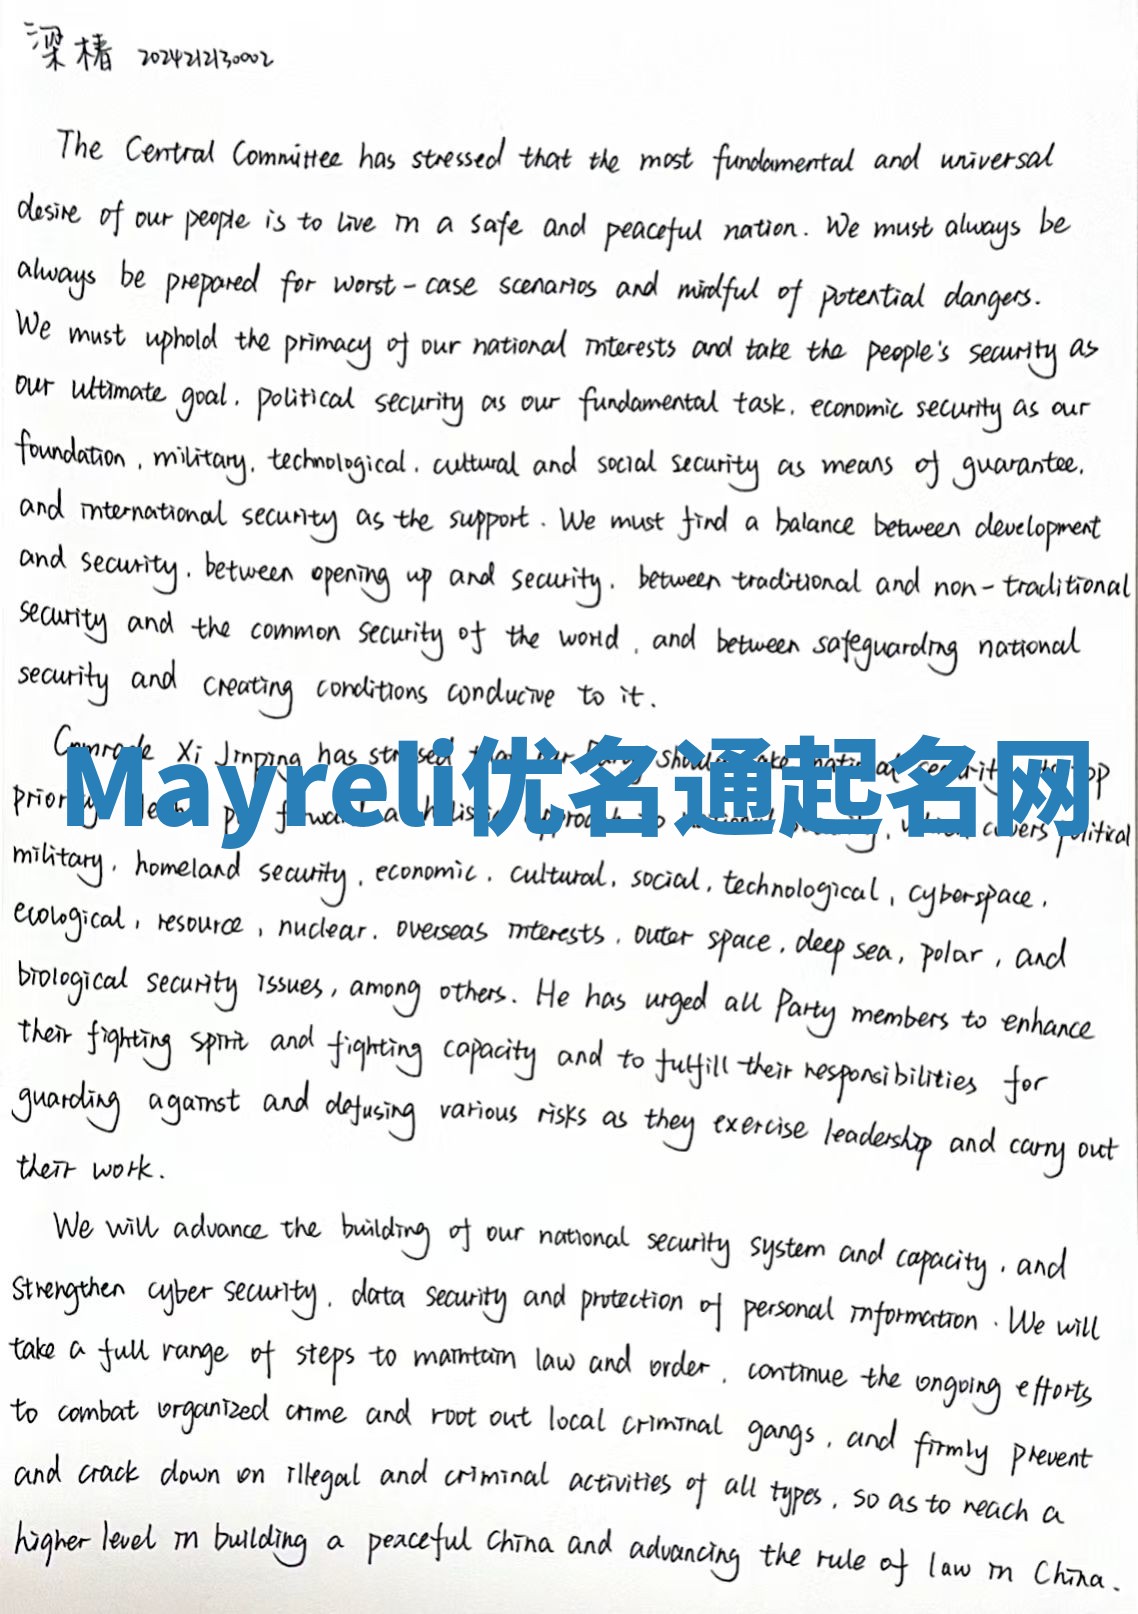 梁椿 2024212130002
The Central Committee has stressed that the most fundamental and universal
desire of our people is to live in a safe and peaceful nation. We must always be
always be prepared for worst-case scenarios and mindful of potential dangers.
We must uphold the primacy of our national interests and take the people's security as
our ultimate goal, political security as our fundamental task, economic security as our
foundation, military, technological, cultural and social security as means of guarantee,
and international security as the support. We must find a balance between development
and security, between opening up and security, between traditional and non-traditional
security and the common security of the world, and between safeguarding national
security and creating conditions conducive to it.
Comrade Xi Jinping has stressed should
Mayreli优名通起名网
covers political
military, homeland security, economic, cultural, social, technological, cyberspace,
ecological, resource, nuclear, overseas interests, outer space, deep sea, polar, and
biological security issues, among others. He has urged all Party members to enhance
their fighting spirit and fighting capacity and to fulfill their responsibilities for
guarding against and defusing various risks as they exercise leadership and carry out
their work.
We will advance the building of our national security system and capacity, and
strengthen cyber security, data security and protection of personal information. We will
take a full range of steps to maintain law and order, continue the ongoing efforts
to combat organized crime and root out local criminal gangs, and firmly prevent
and crack down on illegal and criminal activities of all types, so as to reach a
higher level in building a peaceful China and advancing the rule of law in China.